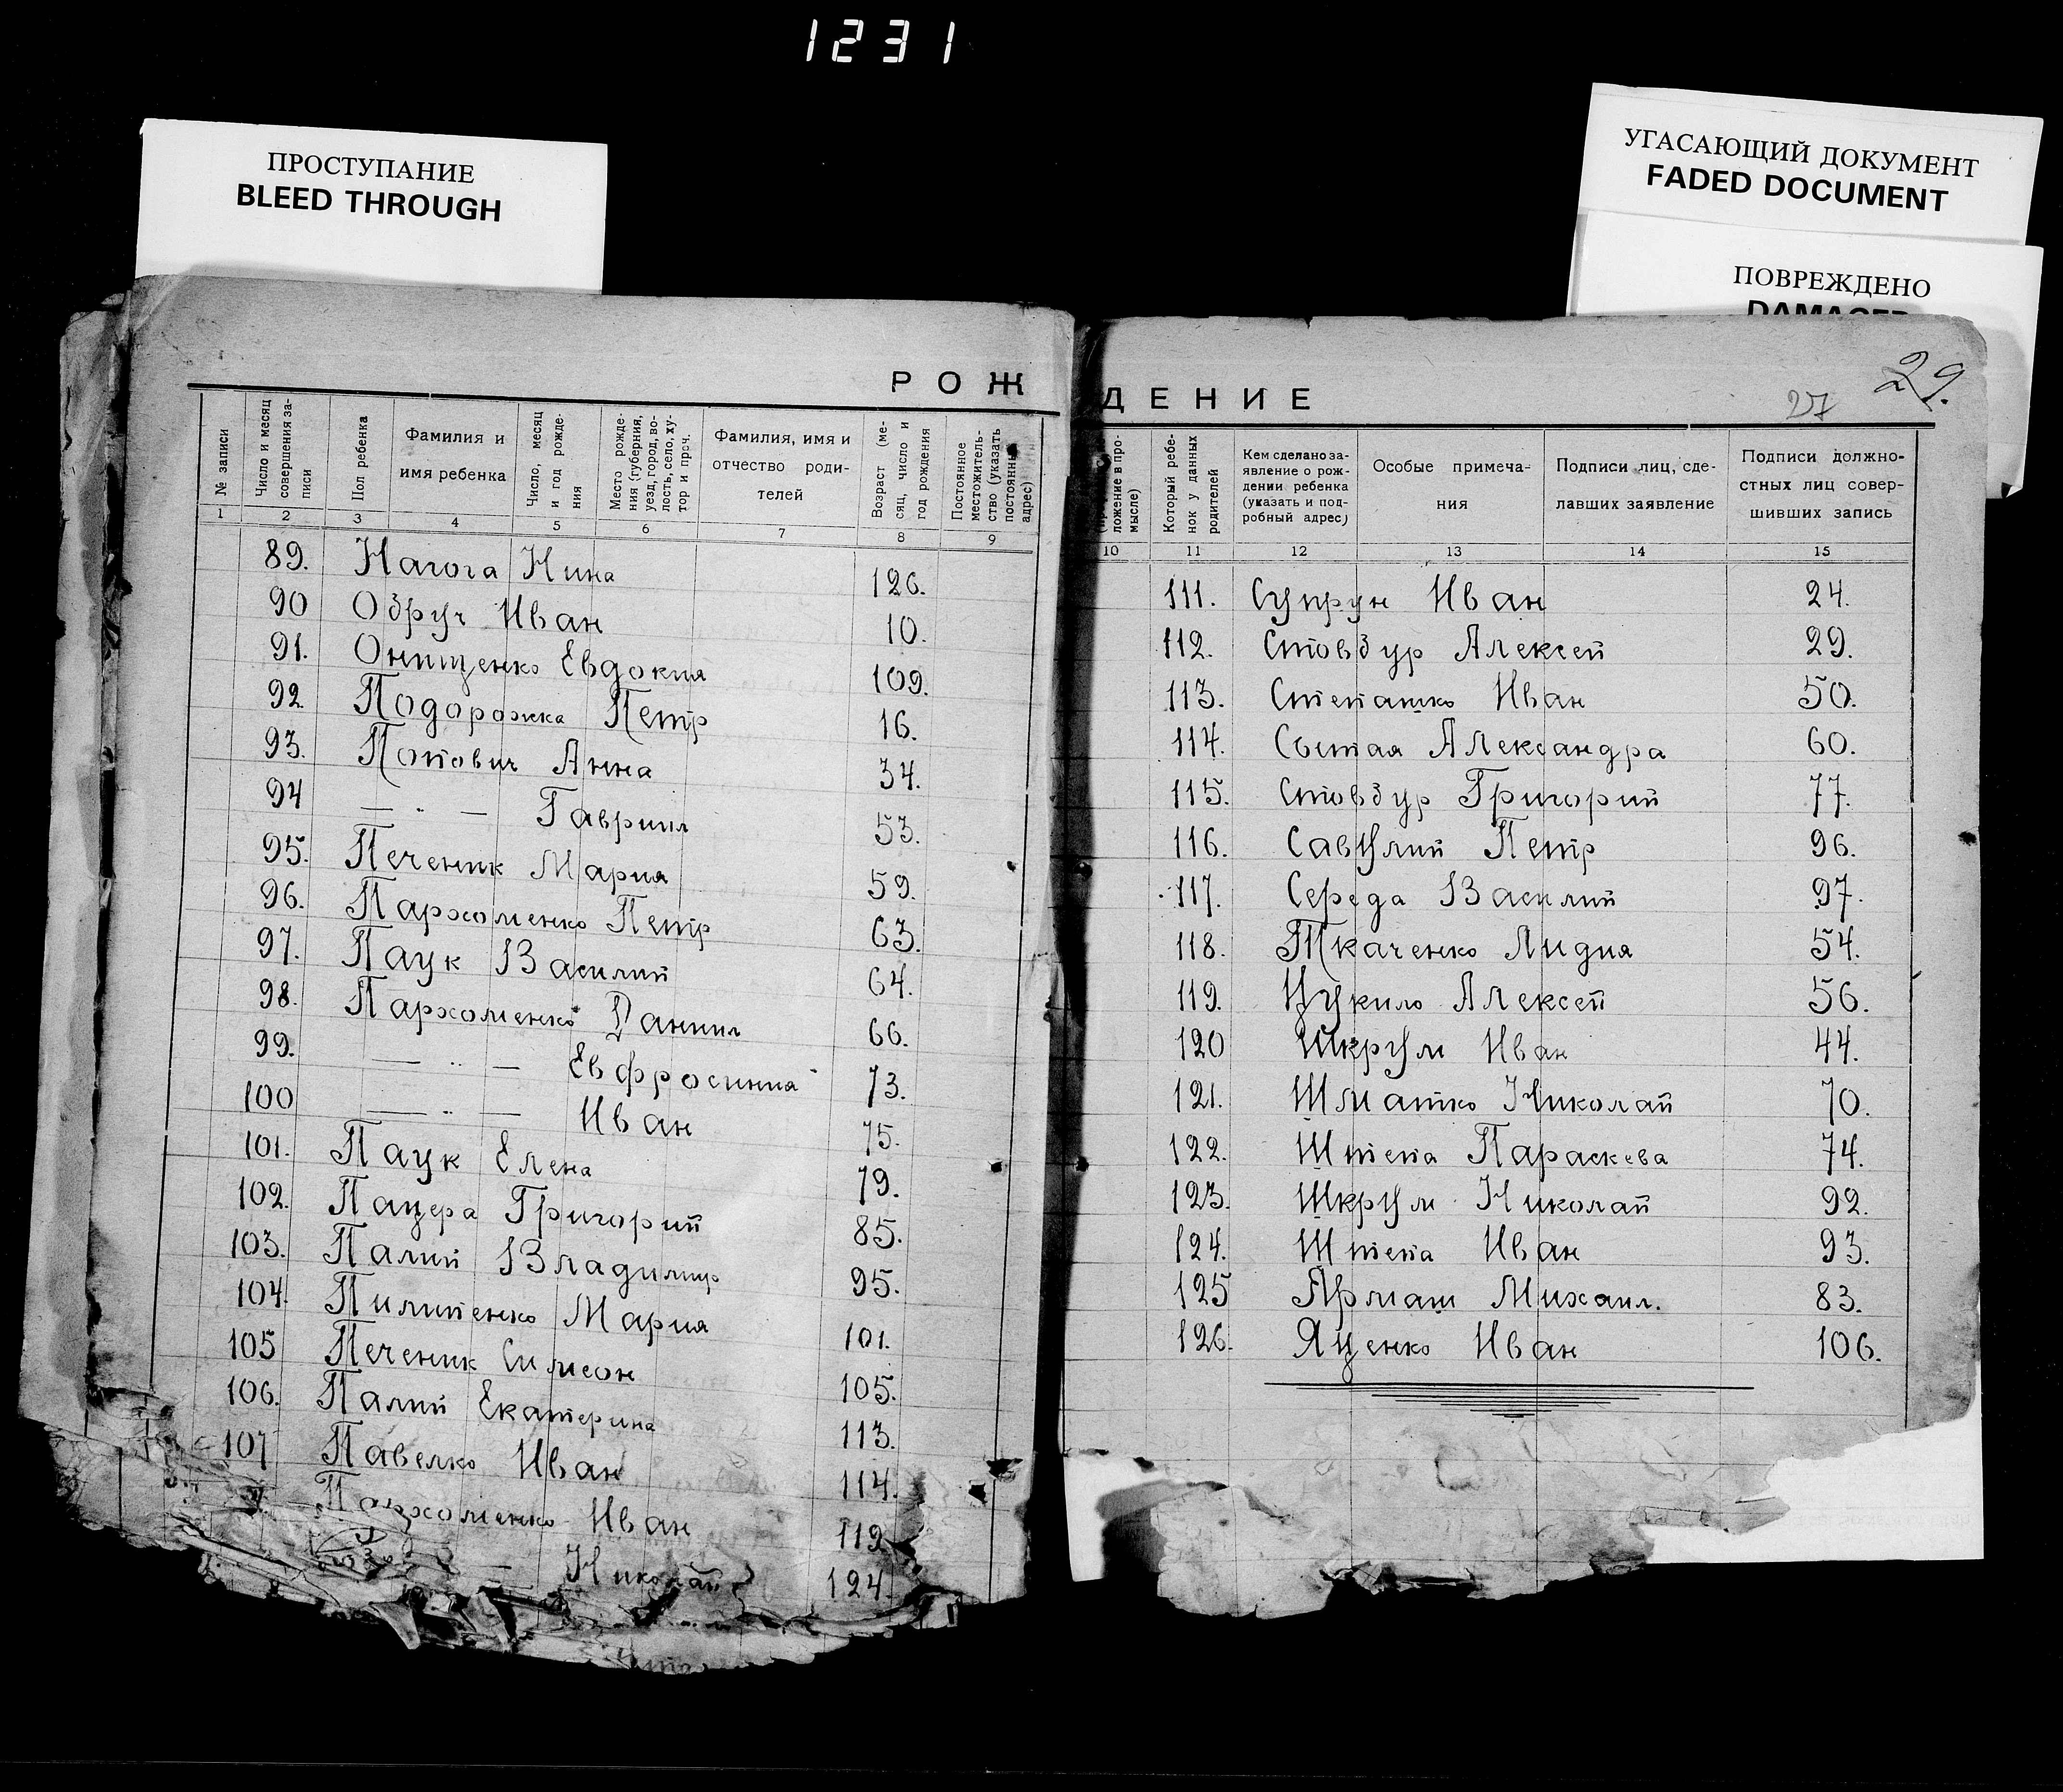 1231
ПРОСТУПАНИЕ
BLEED THROUGH
УГАСАЮЩИЙ ДОКУМЕНТ
FADED DOCUMENT
ПОВРЕЖДЕНО
DAMAGED
29.
27
РОЖДЕНИЕ
№ записи
Число и месяц совершения записи
Пол ребенка
Фамилия и имя ребенка
Число, месяц и год рождения
Место рождения (губерния, уезд, город, волость, село, хутор и проч.
Фамилия, имя и отчество родителей
Возраст (месяц, число и год рождения
Постоянное местожительство (указать постоянный адрес)
ложение в промысле)
Который ребенок у данных родителей
Кем сделано заявление о рождении ребенка (указать и подробный адрес)
Особые примечания
Подписи лиц, сделавших заявление
Подписи должностных лиц совершивших запись
1 2 3 4 5 6 7 8 9 10 11 12 13 14 15
89. Нагога Нина 126.
90 Обруч Иван 10.
91. Онищенко Евдокия 109.
92 Подорожка Петр 16.
93. Попович Анна 34.
94 — " — Гавриил 53.
95. Печеник Мария 59.
96. Пархоменко Петр 63.
97. Паук Василий 64.
98. Пархоменко Даниил 66.
99. — " — Евфросиния 73.
100 — " — Иван 75.
101. Паук Елена 79.
102. Пацера Григорий 85.
103. Палий Владимир 95.
104. Пилипенко Мария 101.
105 Печеник Симеон 105.
106. Палий Екатерина 113.
107 Павелко Иван 114.
Пархоменко Иван 119
— Николай 124
111. Супрун Иван 24.
112. Стовбур Алексей 29.
113. Степашко Иван 50.
114. Сытая Александра 60.
115. Стовбур Григорий 77.
116. Савулий Петр 96.
117. Середа Василий 97.
118. Ткаченко Лидия 54.
119. Цукило Алексей 56.
120 Шкрум Иван 44.
121. Шматко Николай 70.
122. Штепа Параскева 74.
123. Шкрум Николай 92.
124. Штепа Иван 93.
125 Ярмаш Михаил. 83.
126. Яценко Иван 106.